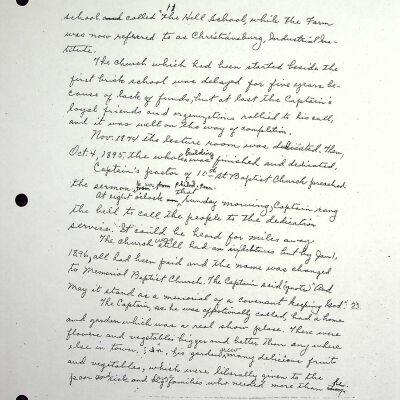 11
school and called "the Hill School, while the Farm
was now referred to as Christiansburg, Industrial Ins-
titute.
The Church which had been started beside the
first brick school was delayed for five years be-
cause of lack of funds, but at last the Captain's
loyal friends and organizations rallied to his call,
and it was well on the way of completion.
Nov. 1894 the lecture room was dedicated. Then,
Oct. 4, 1895, the whole building was finished and dedicated.
Captain's pastor of 10th St Baptist Church preached
the sermon, from Phila.
At eight o'clock that Sunday morning, Captain rang
the bell to call the people to the dedication
service. It could be heard for miles away
The Church still had an indebtness but by Jan 1,
1896, all had been paid and the name was changed
to Memorial Baptist Church. The Captain said (quote) "And
may it stand as a memorial of a covenant keeping God." 23
The Captain, as he was affectionally called, had a home
and garden which was a real show place. There were
flowers and vegetables bigger and better than any where
else in town. In his garden grew many delicious fruit
and vegetables, which were liberally given to the
poor sick and families who needed more than